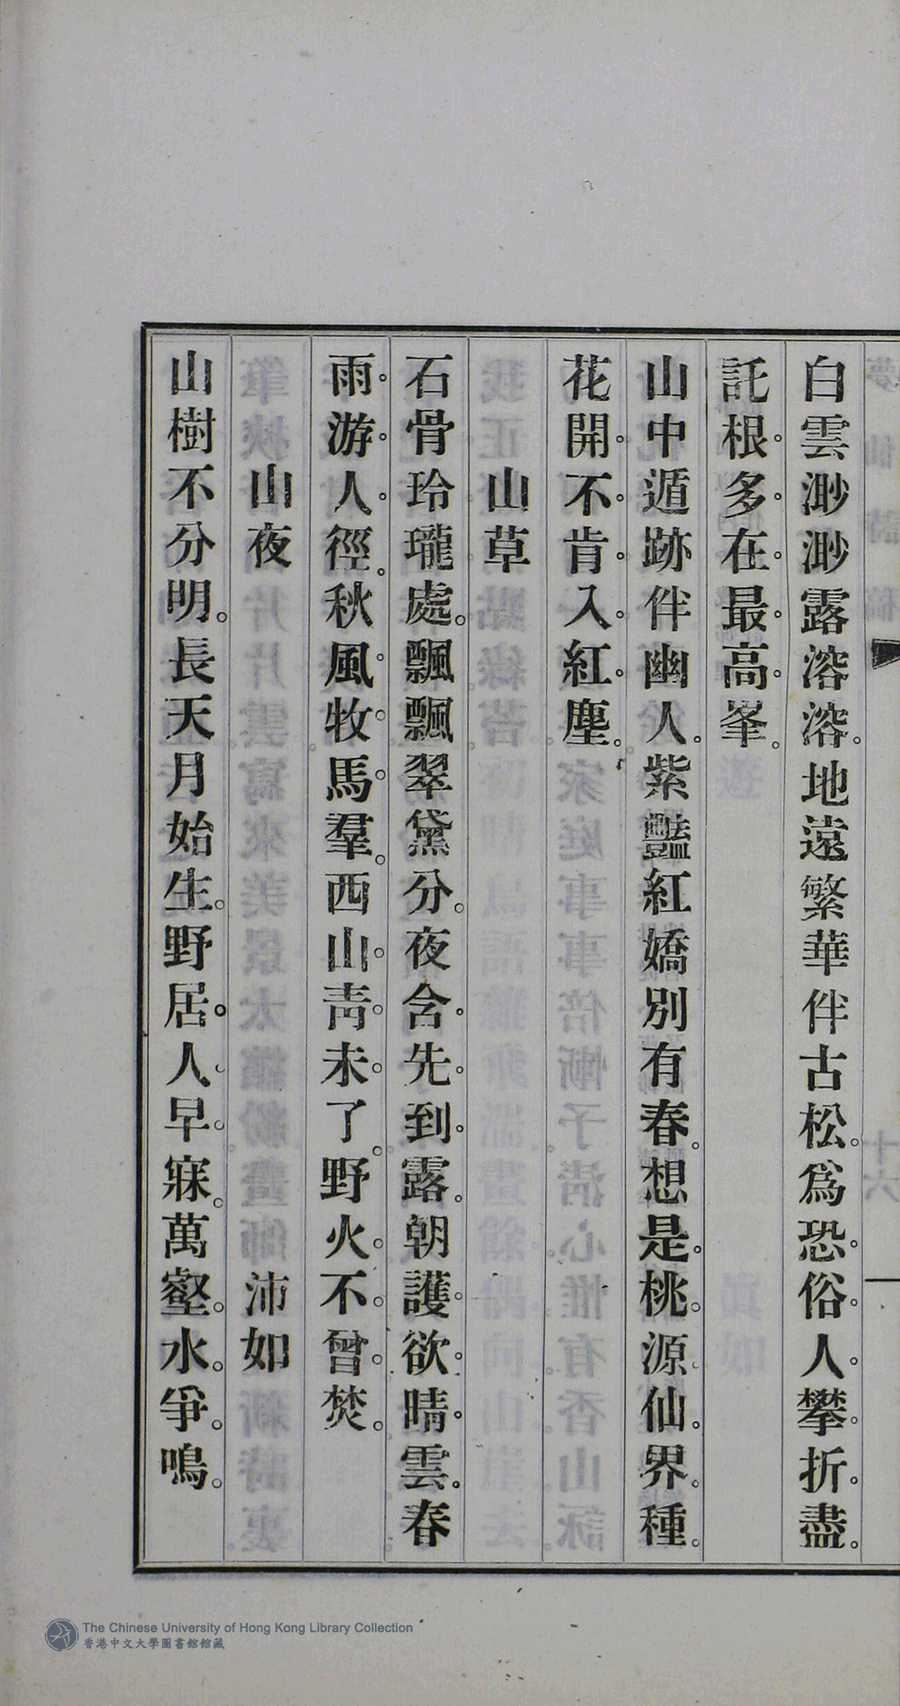 白雲渺渺露溶溶。地遠繁華伴古松。爲恐俗人攀折盡。
託根多在最高峯。
山中遁跡伴幽人。紫豔紅嬌別有春。想是桃源仙界種。
花開不肯入紅塵。
山草
石骨玲瓏處。飄飄翠黛分。夜含先到露。朝護欲晴雲。春
雨游人徑。秋風牧馬羣。西山靑未了。野火不曾焚。
山夜 沛如
山樹不分明。長天月始生。野居人早寐。萬壑水爭鳴。
The Chinese University of Hong Kong Library Collection
香港中文大學圖書館館藏